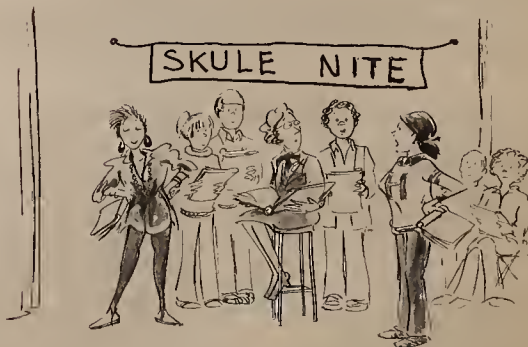 SKULE NITE